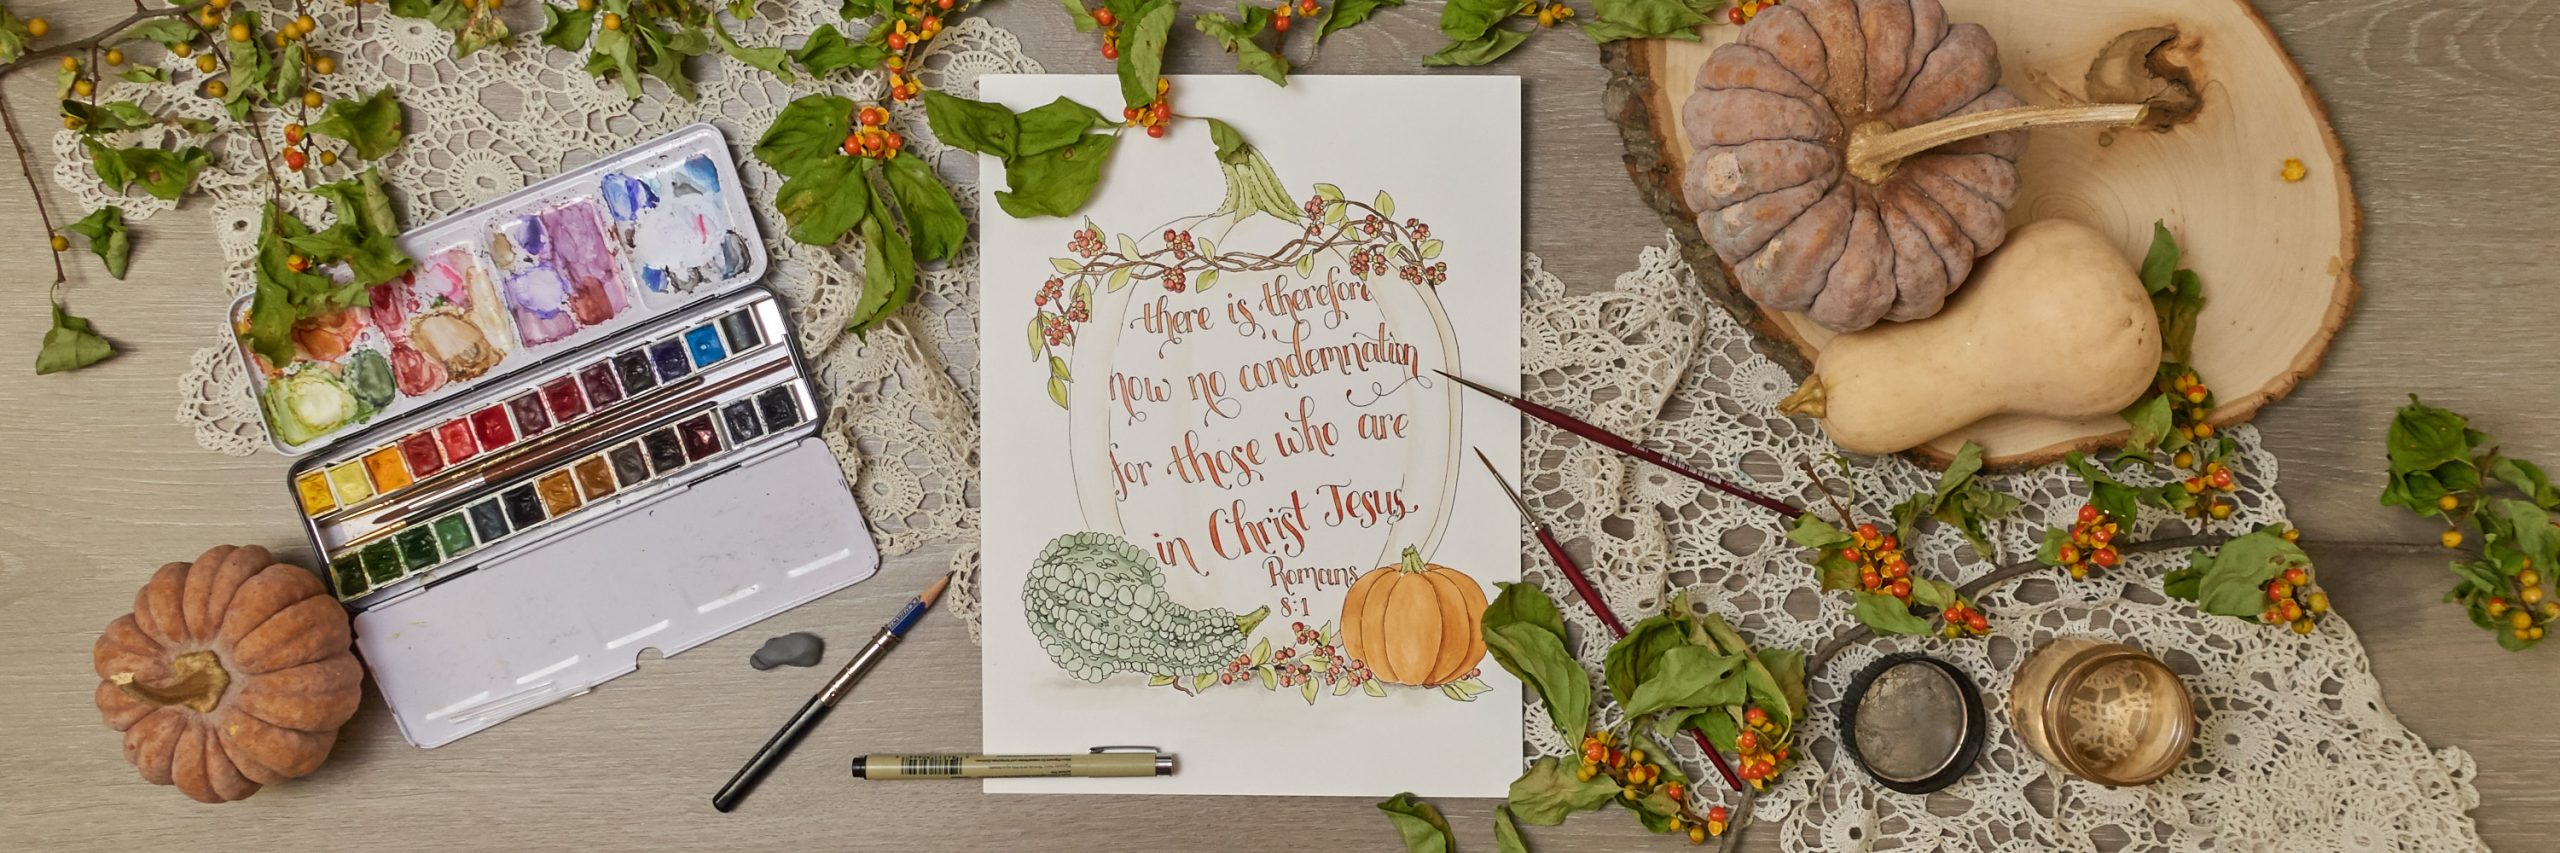 there is therefore
now no condemnation
for those who are
in Christ Jesus
Romans
8:1